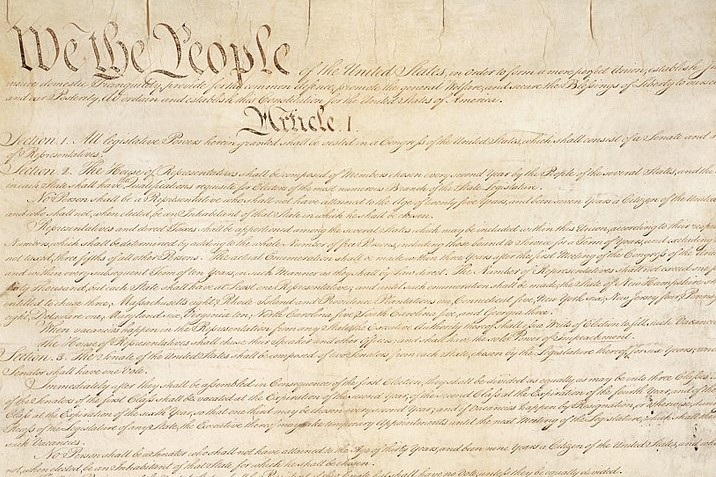 We the People of the United States, in Order to form a more perfect Union, establish
insure domestic Tranquility, provide for the common defence, promote the general Welfare, and secure the Blessings of Liberty to
and our Posterity, do ordain and establish this Constitution for the United States of America.
Article. I.
Section. 1. All legislative Powers herein granted shall be vested in a Congress of the United States, which shall consist of a Senate and
of Representatives.
Section. 2. The House of Representatives shall be composed of Members chosen every second Year by the People of the several States, and the
in each State shall have Qualifications requisite for Electors of the most numerous Branch of the State Legislature.
No Person shall be a Representative who shall not have attained to the Age of twenty five Years, and been seven Years a Citizen of the United
and who shall not, when elected, be an Inhabitant of that State in which he shall be chosen.
Representatives and direct Taxes shall be apportioned among the several States which may be included within this Union, according to their
Numbers, which shall be determined by adding to the whole Number of free Persons, including those bound to Service for a Term of Years, and excluding
not taxed, three fifths of all other Persons. The actual Enumeration shall be made within three Years after the first Meeting of the Congress of the
and within every subsequent Term of ten Years, in such Manner as they shall by Law direct. The Number of Representatives shall not exceed one
thirty Thousand, but each State shall have at Least one Representative; and until such enumeration shall be made, the State of New Hampshire
entitled to chuse three, Massachusetts eight, Rhode Island and Providence Plantations one, Connecticut five, New York six, New Jersey four,
eight, Delaware one, Maryland six, Virginia ten, North Carolina five, South Carolina five, and Georgia three.
When vacancies happen in the Representation from any State, the Executive Authority thereof shall issue Writs of Election to fill such Vacancies.
The House of Representatives shall chuse their Speaker and other Officers; and shall have the sole Power of Impeachment.
Section. 3. The Senate of the United States shall be composed of two Senators from each State, chosen by the Legislature thereof, for six Years; and
Senator shall have one Vote.
Immediately after they shall be assembled in Consequence of the first Election, they shall be divided as equally as may be into three Classes.
of the Senators of the first Class shall be vacated at the Expiration of the second Year, of the second Class at the Expiration of the fourth Year, and of the
Class at the Expiration of the sixth Year, so that one third may be chosen every second Year; and if Vacancies happen by Resignation, or otherwise, during
Recess of the Legislature of any State, the Executive thereof may make temporary Appointments until the next Meeting of the Legislature, which shall then
such Vacancies.
No Person shall be a Senator who shall not have attained to the Age of thirty Years, and been nine Years a Citizen of the United States, and who
not, when elected, be an Inhabitant of that State for which he shall be chosen.
shall have no Vote, unless they be equally divided.